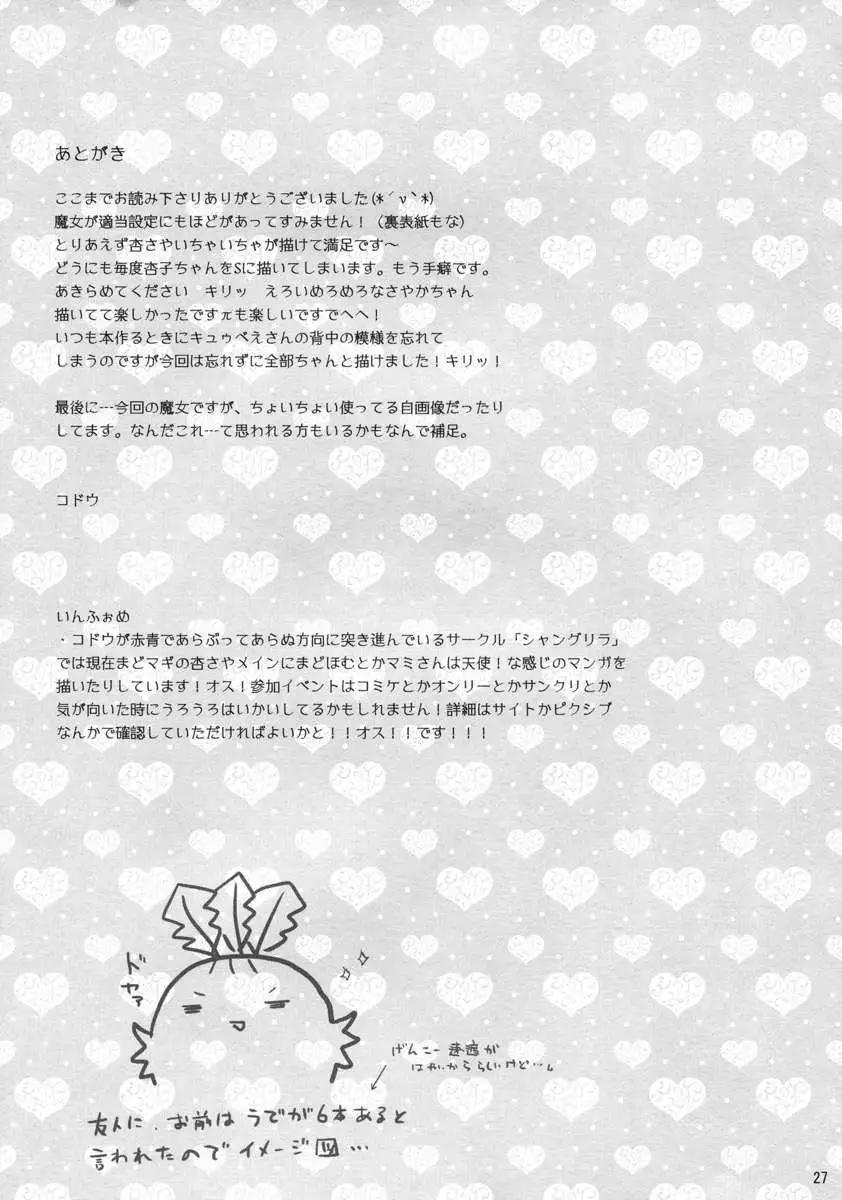 あとがき
ここまでお読み下さりありがとうございました(*´ν`*)
魔女が適当設定にもほどがあってすみません！（裏表紙もな）
とりあえず杏さやいちゃいちゃが描けて満足です～
どうにも毎度杏子ちゃんをSに描いてしまいます。もう手癖です。
あきらめてください　キリッ　えろいめろめろなさやかちゃん
描いてて楽しかったですπも楽しいですでへへ！
いつも本作るときにキュゥべえさんの背中の模様を忘れて
しまうのですが今回は忘れずに全部ちゃんと描けました！キリッ！
最後に…今回の魔女ですが、ちょいちょい使ってる自画像だったり
してます。なんだこれ…て思われる方もいるかもなんで補足。
コドウ
いんふぉめ
・コドウが赤青であらぶってあらぬ方向に突き進んでいるサークル「シャングリラ」
では現在まどマギの杏さやメインにまどほむとかマミさんは天使！な感じのマンガを
描いたりしています！オス！参加イベントはコミケとかオンリーとかサンクリとか
気が向いた時にうろうろはいかいしてるかもしれません！詳細はサイトかピクシブ
なんかで確認していただければよいかと！！オス！！です！！！
ドヤァ
げんこー速度が
はやいかららしいけど…。
友人に、お前はうでが6本あると
言われたのでイメージ図…
27